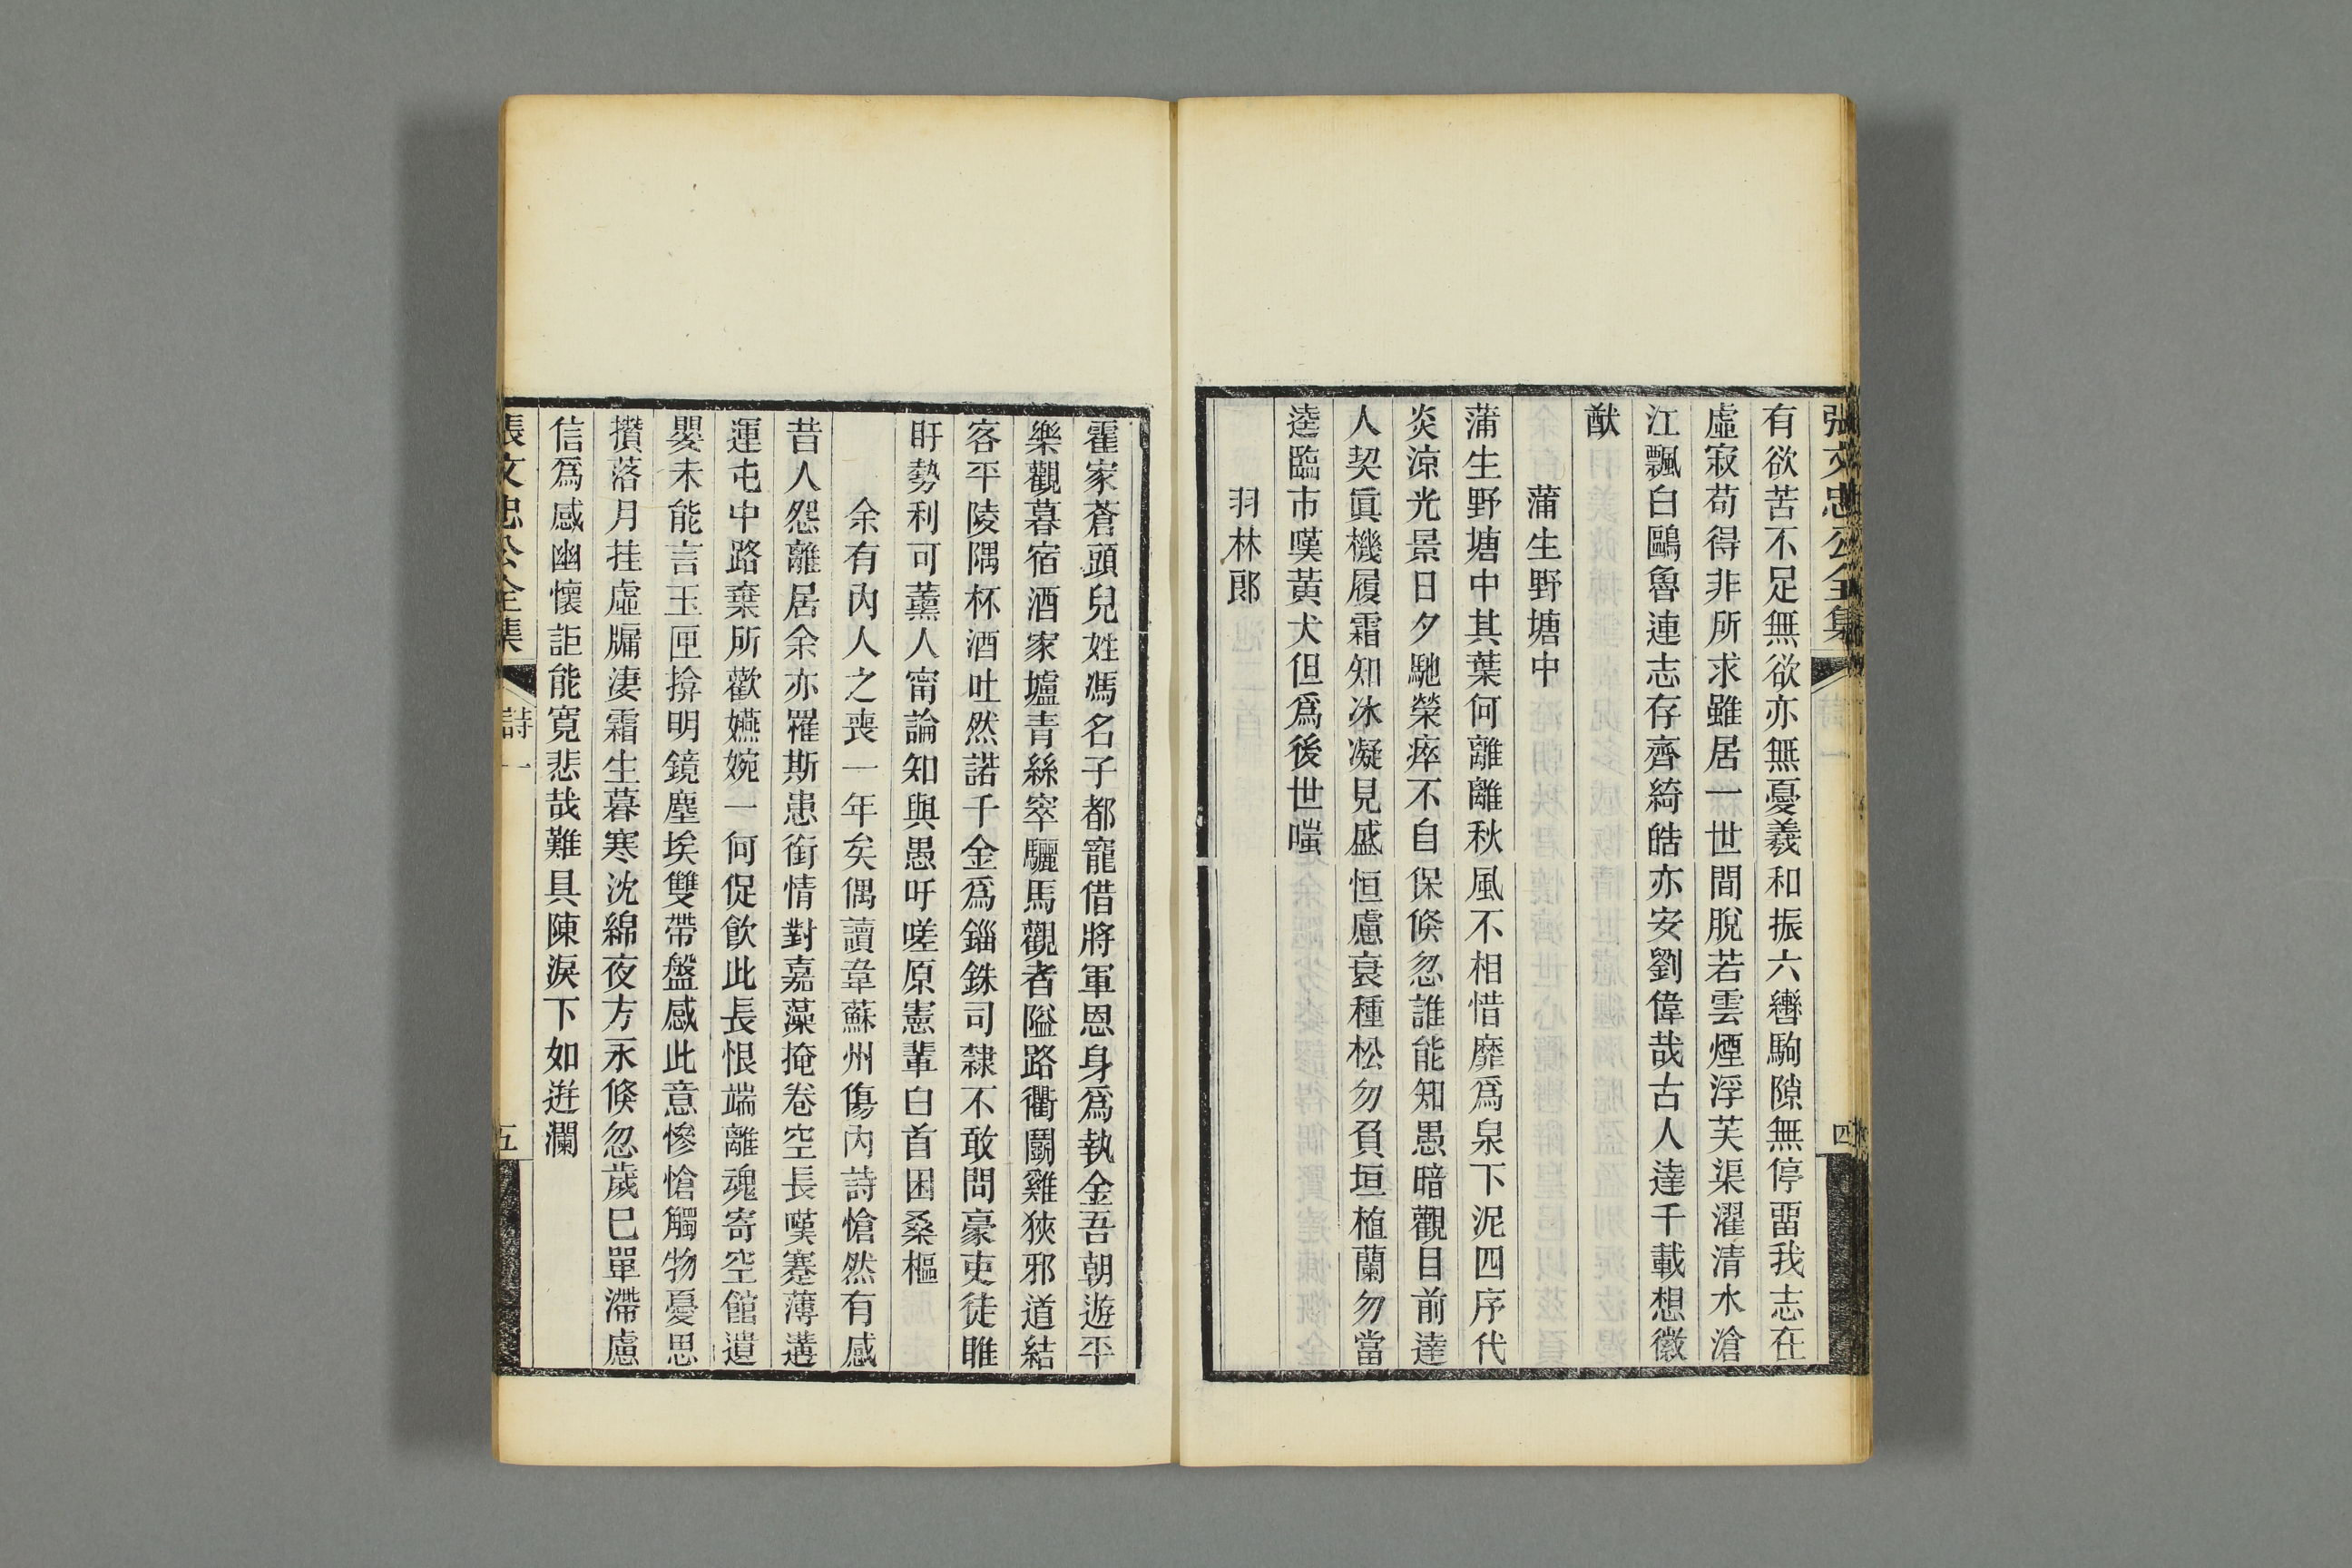 張文忠公全集 詩一 四
有欲苦不足無欲亦無憂羲和振六轡駒隙無停畱我志在
虛寂苟得非所求雖居一世間脫若雲煙浮芙渠濯清水滄
江飄白鷗魯連志存齊綺皓亦安劉偉哉古人達千載想徽
猷
蒲生野塘中
蒲生野塘中其葉何離離秋風不相惜靡爲泉下泥四序代
炎涼光景日夕馳榮瘁不自保倏忽誰能知愚暗觀目前達
人契眞機履霜知冰凝見盛恒慮衰種松勿負垣植蘭勿當
逵臨市嘆黃犬但爲後世嗤
羽林郎
霍家蒼頭兒姓馮名子都寵借將軍恩身爲執金吾朝遊平
樂觀暮宿酒家壚靑絲窣驪馬觀者隘路衢鬬雞狹邪道結
客平陵隅杯酒吐然諾千金爲錙銖司隸不敢問豪吏徒睢
盱勢利可薰人甯論知與愚吁嗟原憲輩白首困桑樞
余有內人之喪一年矣偶讀韋蘇州傷內詩愴然有感
昔人怨離居余亦罹斯患銜情對嘉藻掩卷空長嘆蹇薄遘
運屯中路棄所歡嬿婉一何促飮此長恨端離魂寄空館遺
嬰未能言玉匣揜明鏡塵埃雙帶盤感此意慘愴觸物憂思
攢落月挂虛牖淒霜生暮寒沈綿夜方永倏忽歲已單滯慮
信爲感幽懷詎能寬悲哉難具陳淚下如迸瀾
張文忠公全集 詩一 五